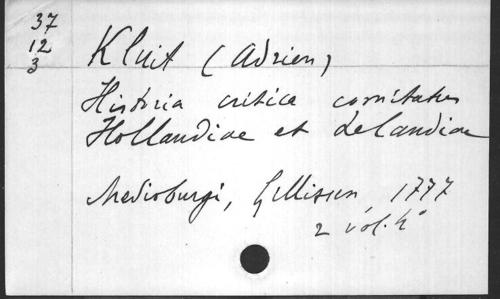 37
12
3
Kluit (Adrien)
Historia critica comitatus
Hollandiae et Zelandiae
Medioburgi, Gillissen, 1777
2 vol. 4°